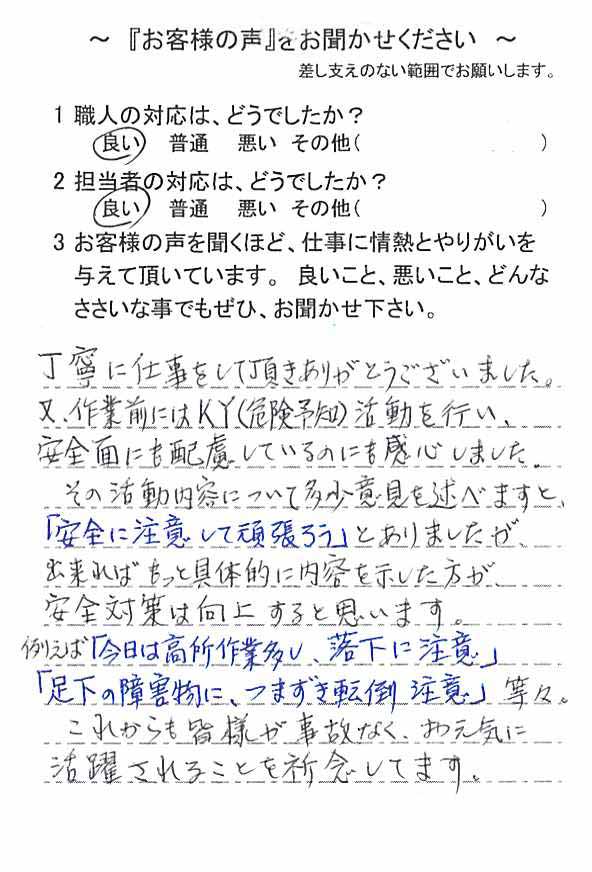 ～ 『お客様の声』をお聞かせください ～
差し支えのない範囲でお願いします。
1 職人の対応は、どうでしたか？
良い 普通 悪い その他( )
2 担当者の対応は、どうでしたか？
良い 普通 悪い その他( )
3 お客様の声を聞くほど、仕事に情熱とやりがいを
与えて頂いています。 良いこと、悪いこと、どんな
ささいな事でもぜひ、お聞かせ下さい。
丁寧に仕事をして頂きありがとうございました。
又、作業前にはKY(危険予知)活動を行い、
安全面にも配慮しているのにも感心しました。
その活動内容について多少意見を述べますと、
「安全に注意して頑張ろう」とありましたが、
出来ればもっと具体的に内容を示した方が、
安全対策は向上すると思います。
例えば「今日は高所作業多し、落下に注意」
「足下の障害物に、つまずき転倒注意」等々。
これからも皆様が事故なく、お元気に
活躍されることを祈念してます。